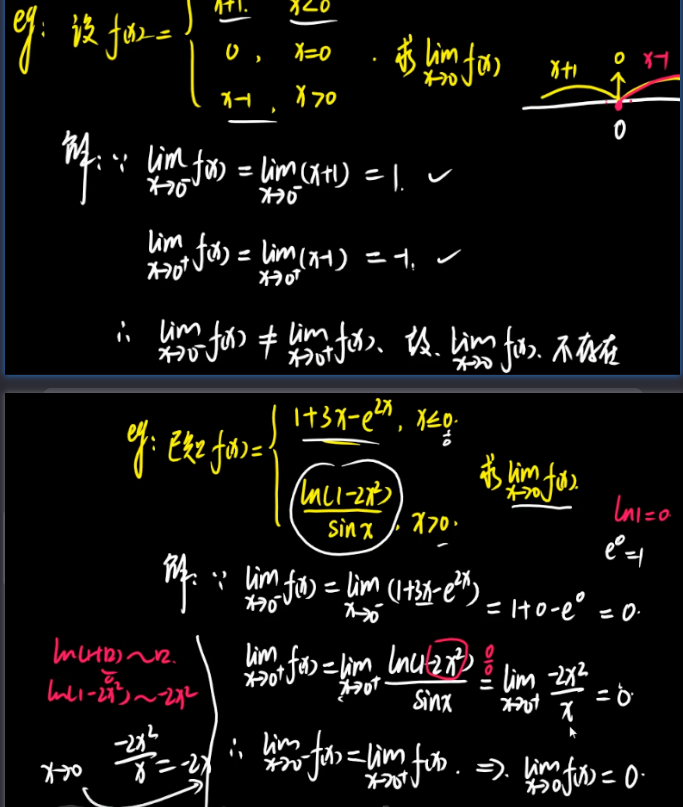 eg: 设 f(x) = { x+1, x<0
0, x=0 . 求 lim x→0 f(x)
x-1, x>0
x+1 0 x-1
0
解: ∵ lim x→0⁻ f(x) = lim x→0⁻ (x+1) = 1. ✓
lim x→0⁺ f(x) = lim x→0⁺ (x-1) = -1. ✓
∴ lim x→0⁻ f(x) ≠ lim x→0⁺ f(x). 故. lim x→0 f(x). 不存在
eg: 已知 f(x) = { 1+3x-e^{2x}, x≤0.
0
ln(1-2x²)/sin x, x>0.
求 lim x→0 f(x).
ln1=0
e⁰=1
解: ∵ lim x→0⁻ f(x) = lim x→0⁻ (1+3x-e^{2x}) = 1+0-e⁰ = 0.
lim x→0⁺ f(x) = lim x→0⁺ ln(1-2x²)/sin x 0/0 = lim x→0⁺ -2x²/x = 0.
∴ lim x→0⁻ f(x) = lim x→0⁺ f(x). ⇒. lim x→0 f(x) = 0.
ln(1+□) ~ □.
0
ln(1-2x²) ~ -2x²
x→0 -2x²/x = -2x